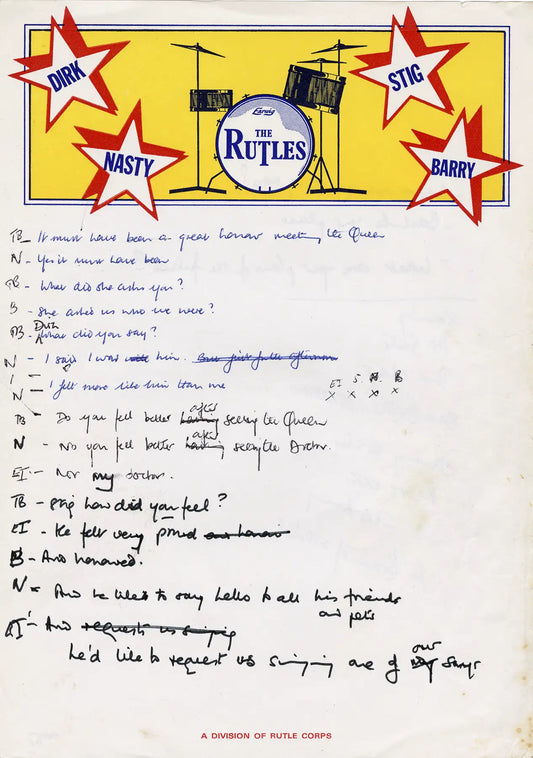 DIRK
STIG
NASTY
BARRY
Ludwig
THE
RUTLES
TB - It must have been a great honour meeting the Queen
N - Yes it must have been
TB - What did she ask you?
B - She asked us who we were?
Dirk
TB - What did you say?
N - I said I was him.
I - I felt more like him than me
N
EI S. N. B
x x x x
after
TB - Do you feel better having seeing the Queen
after
N - No you feel better having seeing the Doctor.
EI - Nor my doctor.
TB - Stig how did you feel?
EI - He felt very proud
B - And honoured.
N - And he likes to say hello to all his friends
and pets
EI - And requests us singing
he'd like to request us singing one of our songs
A DIVISION OF RUTLE CORPS